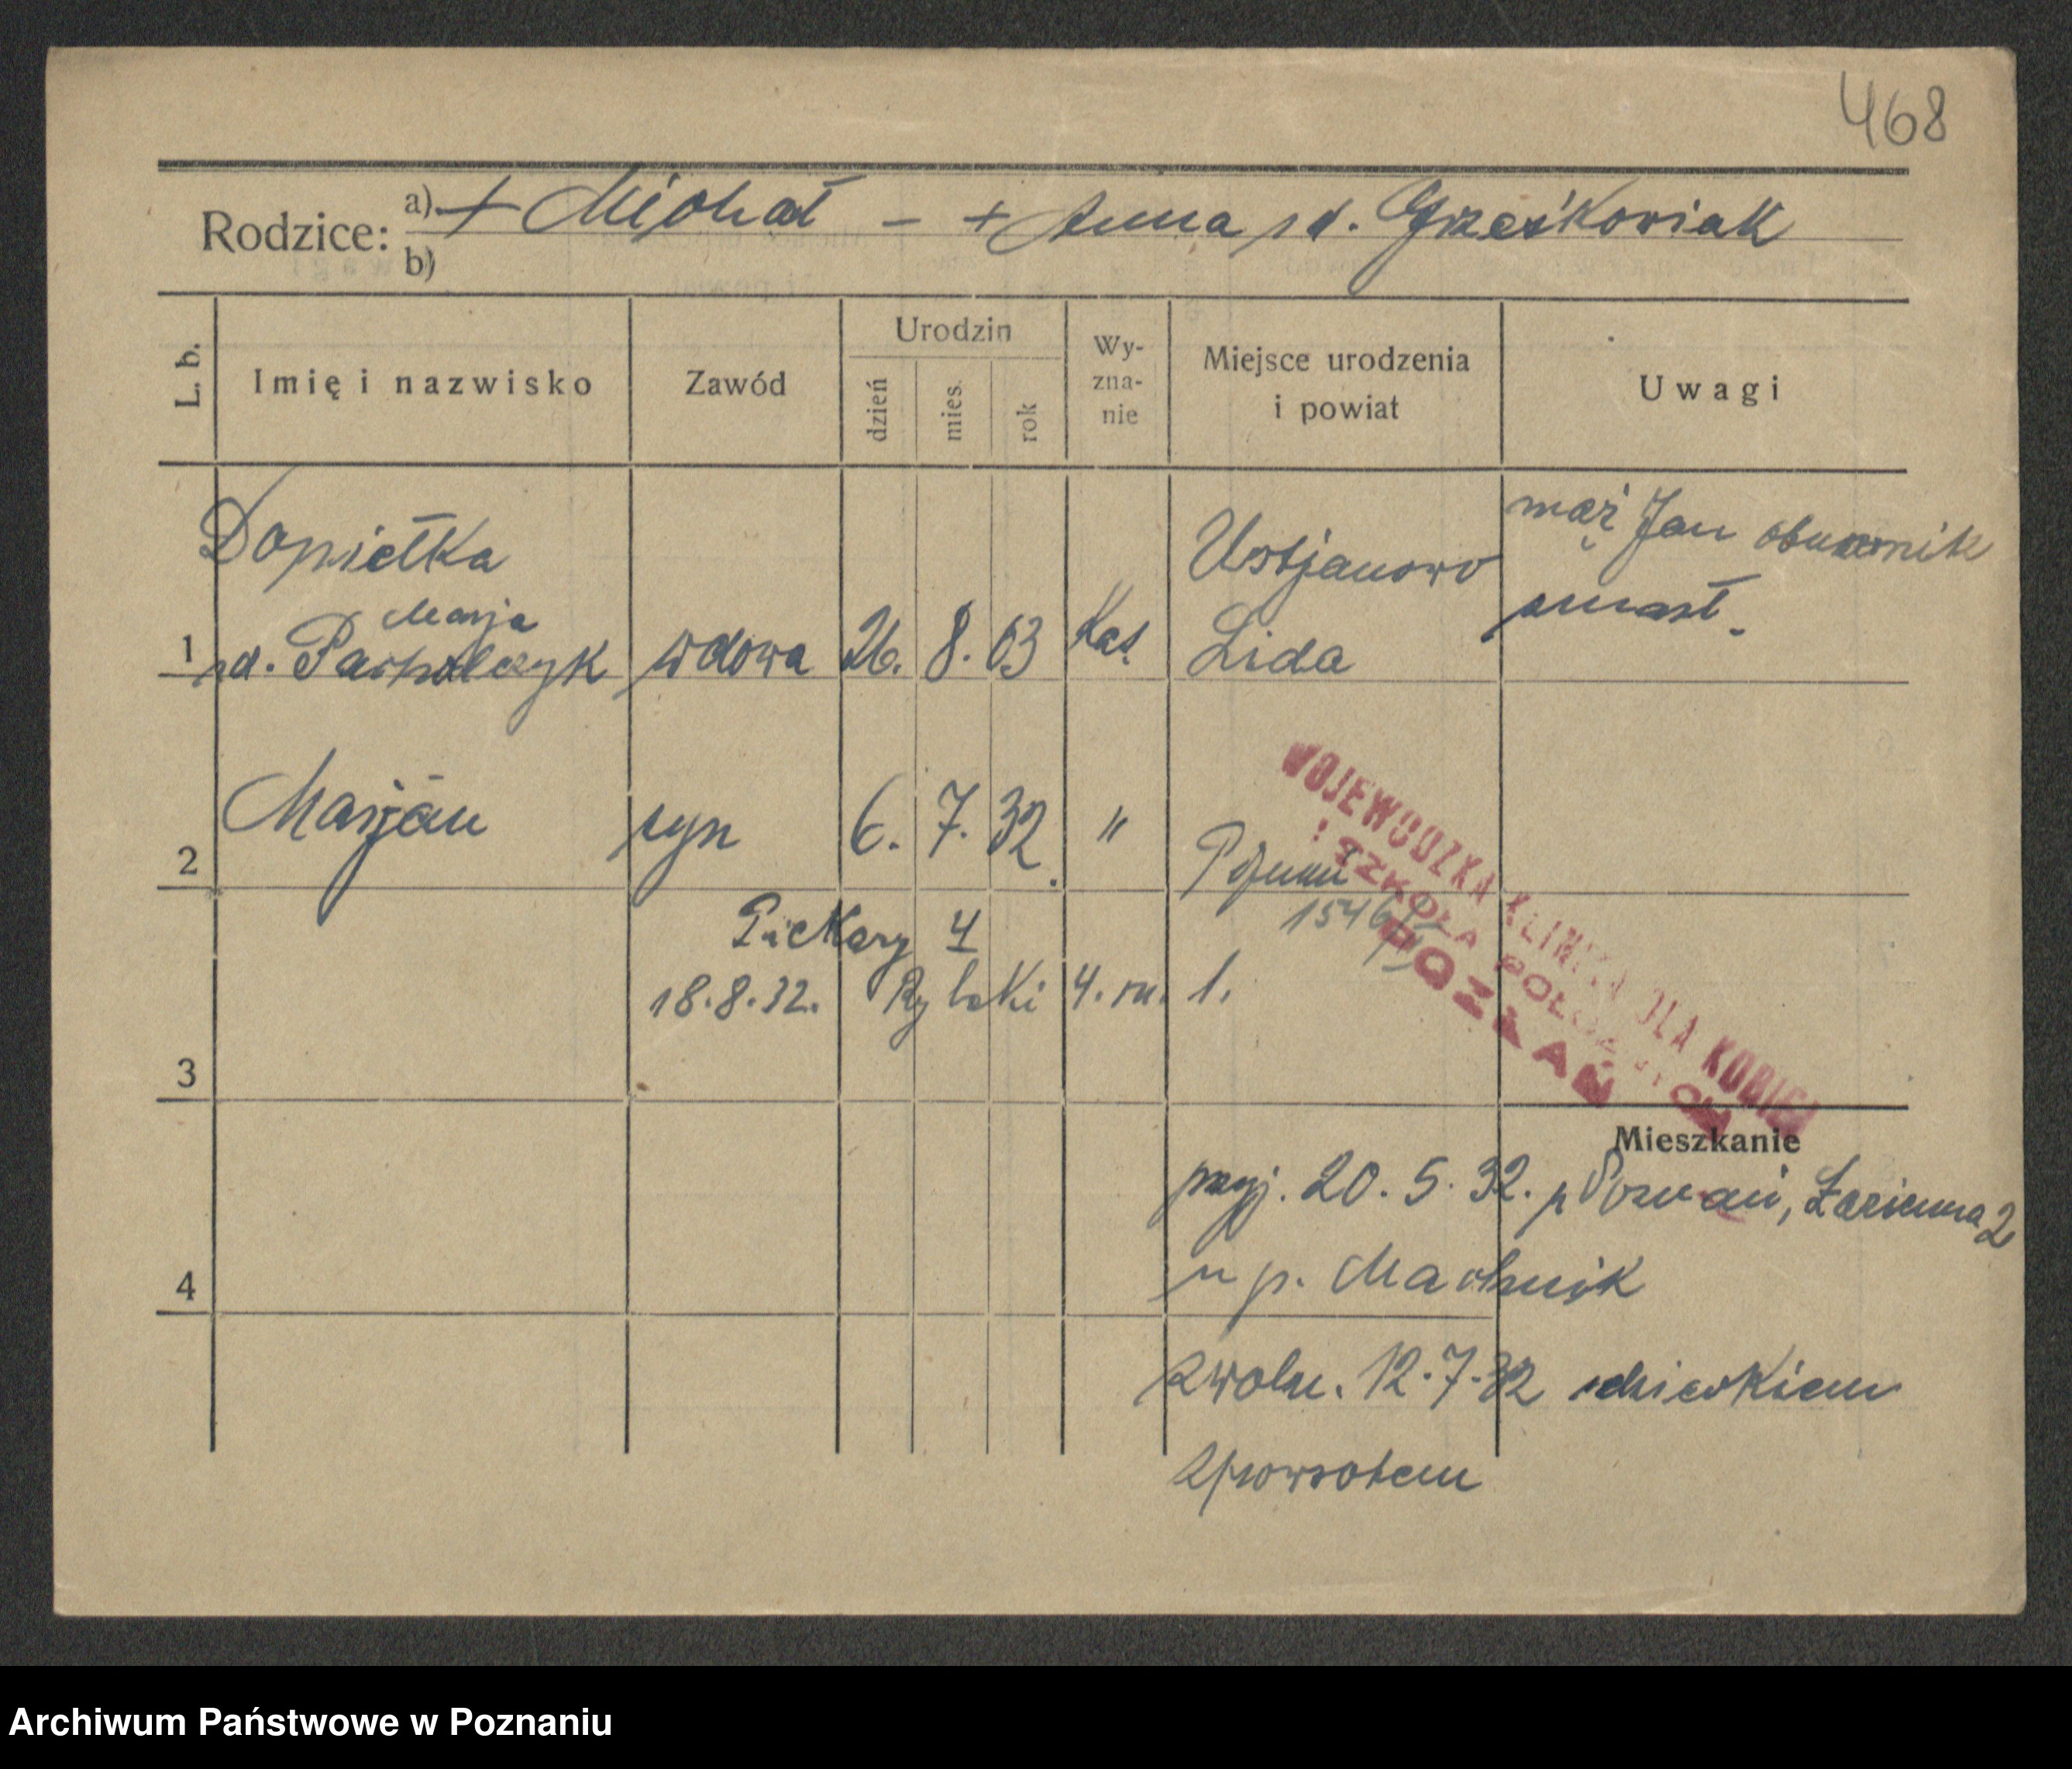 468
Rodzice: a) + Michał - + Anna zd. Grześkowiak
b)
L. b.
Imię i nazwisko
Zawód
Urodzin
dzień
mies.
rok
Wy-
zna-
nie
Miejsce urodzenia
i powiat
Uwagi
Dopiełka
Marja
1 zd. Pacholczyk wdowa 26. 8. 03 Kat. Ustjanowo
Lida
mąż Jan
zmarł.
2 Marjan syn 6. 7. 32. " Poznań
WOJEWÓDZKA KLINIKA DLA KOBIET
i SZKOŁA POŁOŻNYCH
POZNAŃ
Piekary 4
18.8.32. Rybaki 4. m. 1.
3
Mieszkanie
przyj. 20. 5. 32. p Poznań, Łazienna 2
u p. Machnik
4
zwoln. 12.7.32 z dzieckiem
zpowrotem
Archiwum Państwowe w Poznaniu